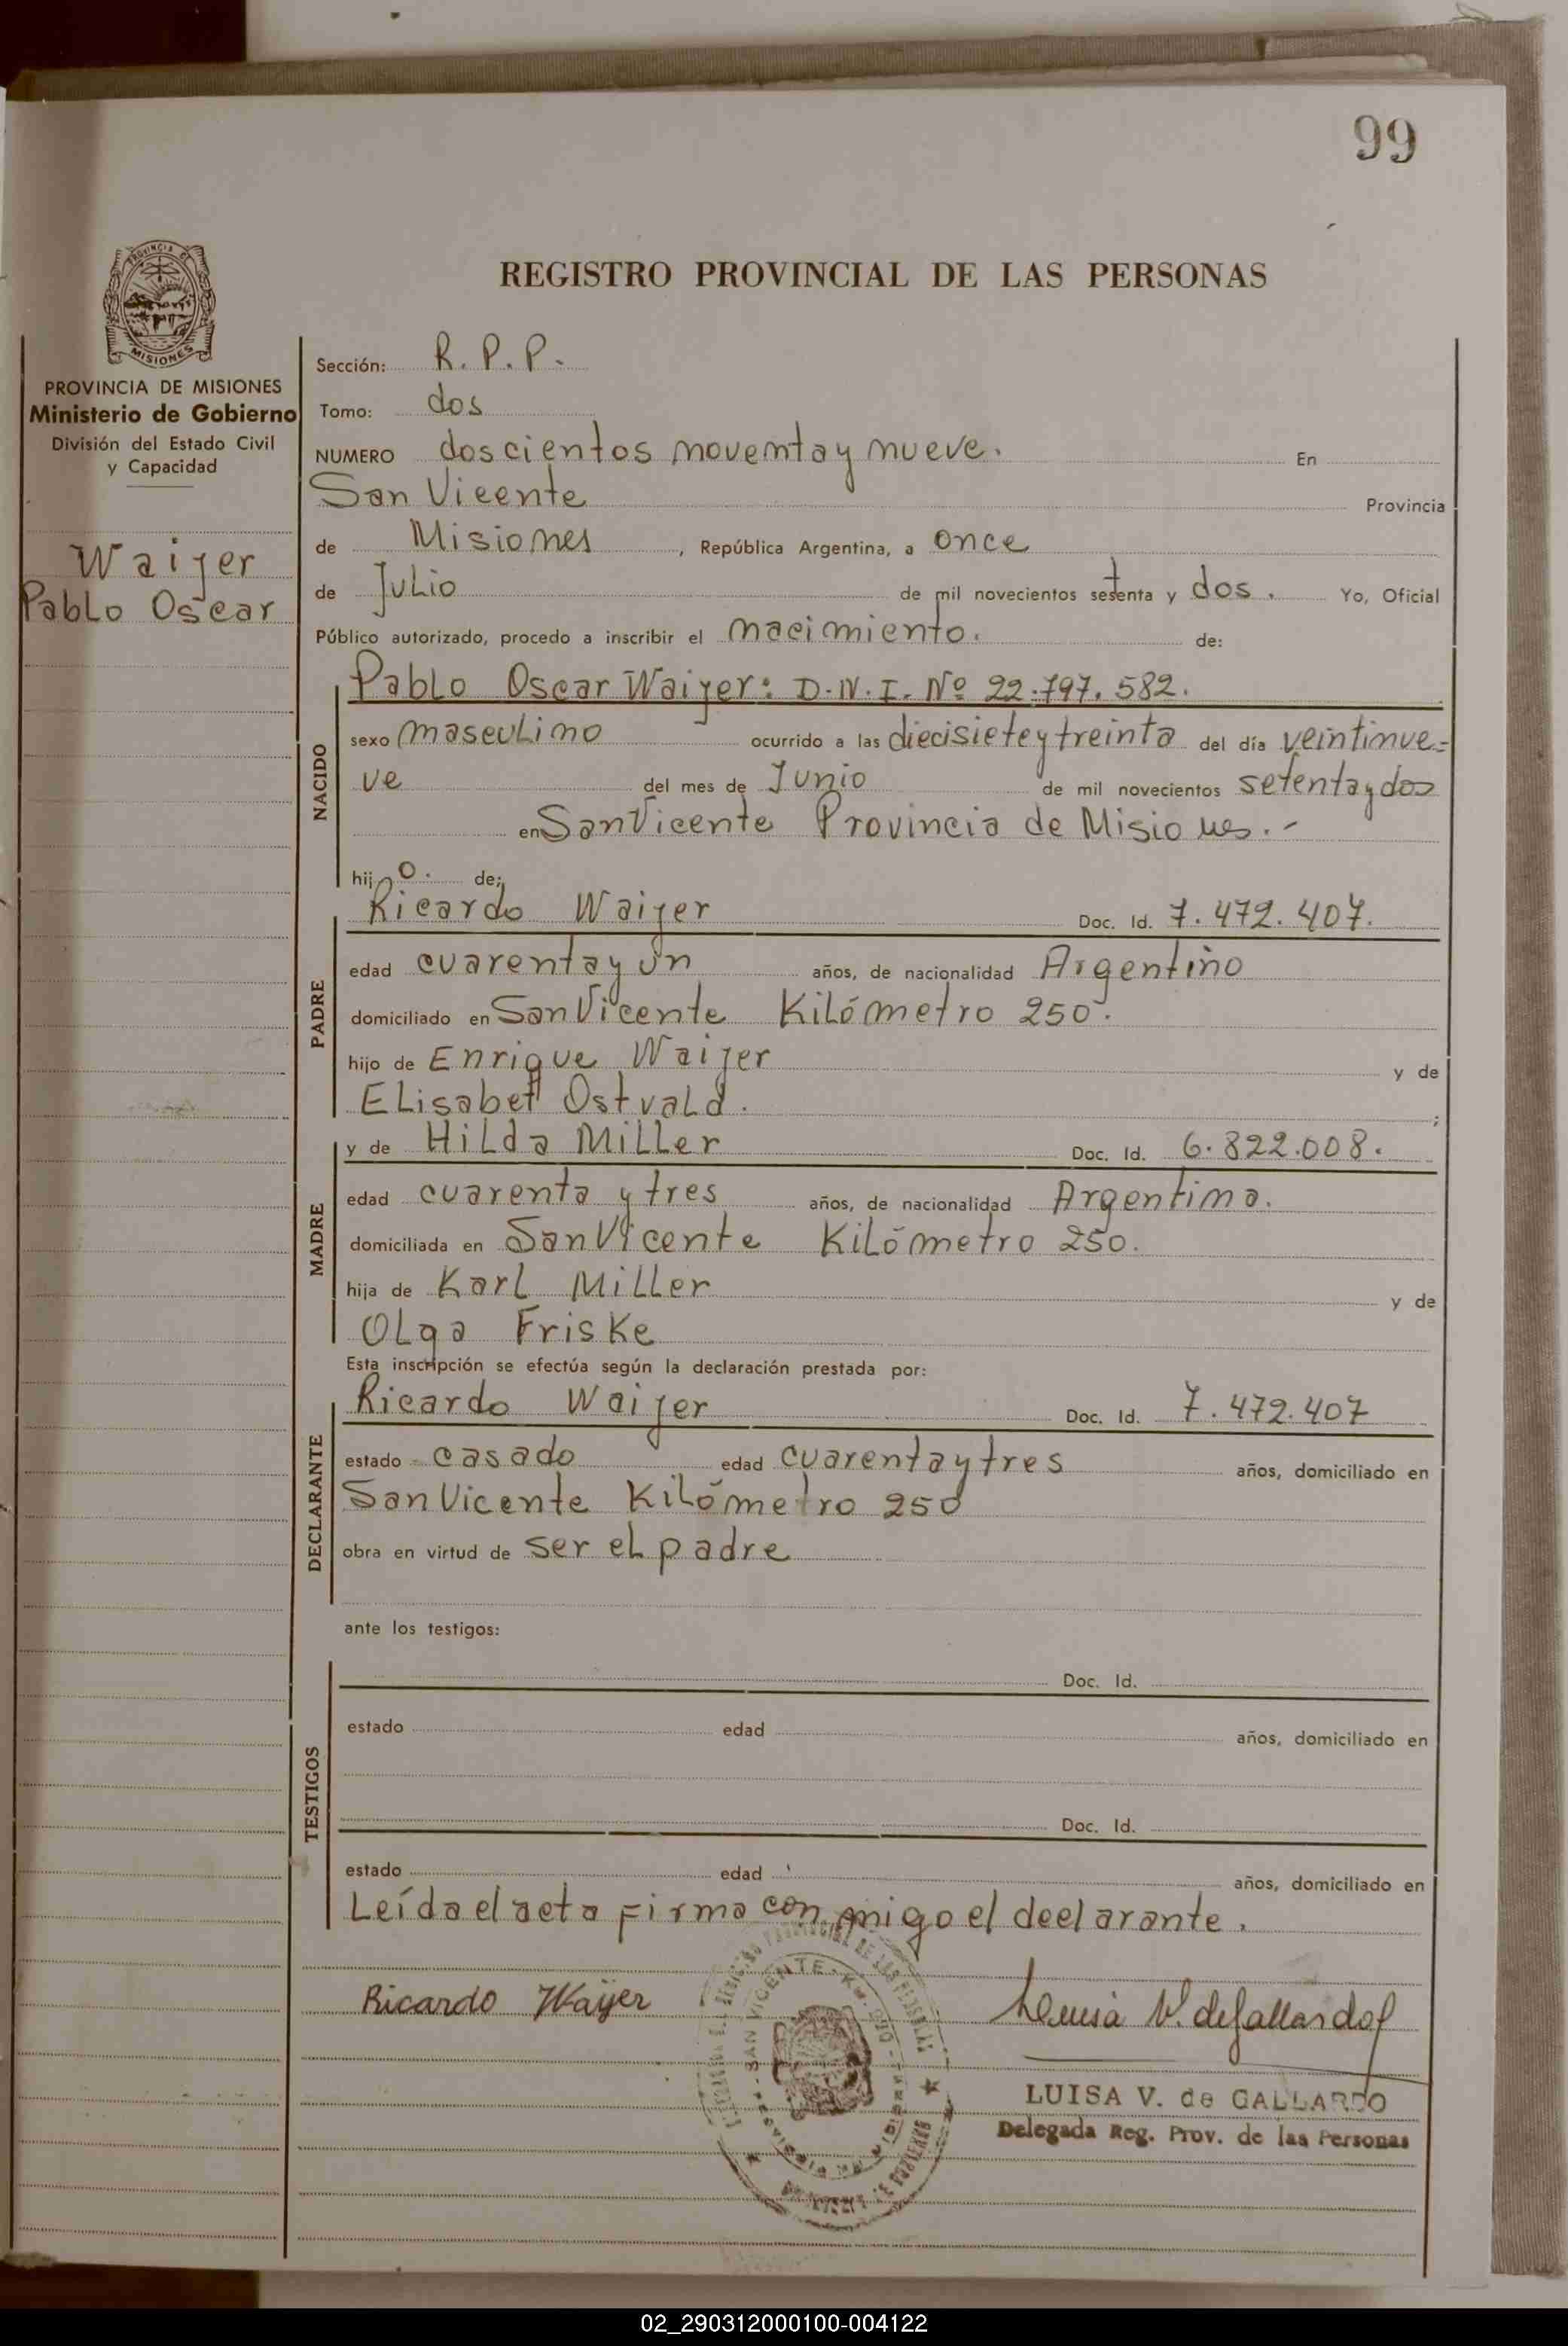 99
REGISTRO PROVINCIAL DE LAS PERSONAS
PROVINCIA DE MISIONES
Ministerio de Gobierno
División del Estado Civil
y Capacidad
Waiyer
Pablo Oscar
Sección: R. P. P.
Tomo: dos
NUMERO doscientos noventa y nueve. En
San Vicente Provincia
de Misiones, República Argentina, a once
de Julio de mil novecientos setenta y dos. Yo, Oficial
Público autorizado, procedo a inscribir el nacimiento. de:
NACIDO
Pablo Oscar Waiyer: D.N.I. Nº 22.797.582.
sexo masculino ocurrido a las diecisiete y treinta del día veintinue=
ve del mes de Junio de mil novecientos setenta y dos
en San Vicente Provincia de Misiones.-
hijo. de:
PADRE
Ricardo Waiyer Doc. Id. 7.472.407.
edad cuarenta y un años, de nacionalidad Argentino
domiciliado en San Vicente Kilómetro 250.
hijo de Enrique Waiyer y de
Elisabet Ostvald. ;
MADRE
y de Hilda Miller Doc. Id. 6.822.008.
edad cuarenta y tres años, de nacionalidad Argentina.
domiciliada en San Vicente Kilómetro 250.
hija de Karl Miller y de
Olga Friske
Esta inscripción se efectúa según la declaración prestada por:
DECLARANTE
Ricardo Waiyer Doc. Id. 7.472.407
estado casado edad cuarenta y tres años, domiciliado en
San Vicente Kilómetro 250
obra en virtud de ser el padre
ante los testigos:
TESTIGOS
Doc. Id.
estado edad años, domiciliado en
Doc. Id.
estado edad años, domiciliado en
Leída el acta firma conmigo el declarante.
Ricardo Wayer
Luisa V. de Gallardo
LUISA V. de GALLARDO
Delegada Reg. Prov. de las Personas
SAN VICENTE
02_290312000100-004122